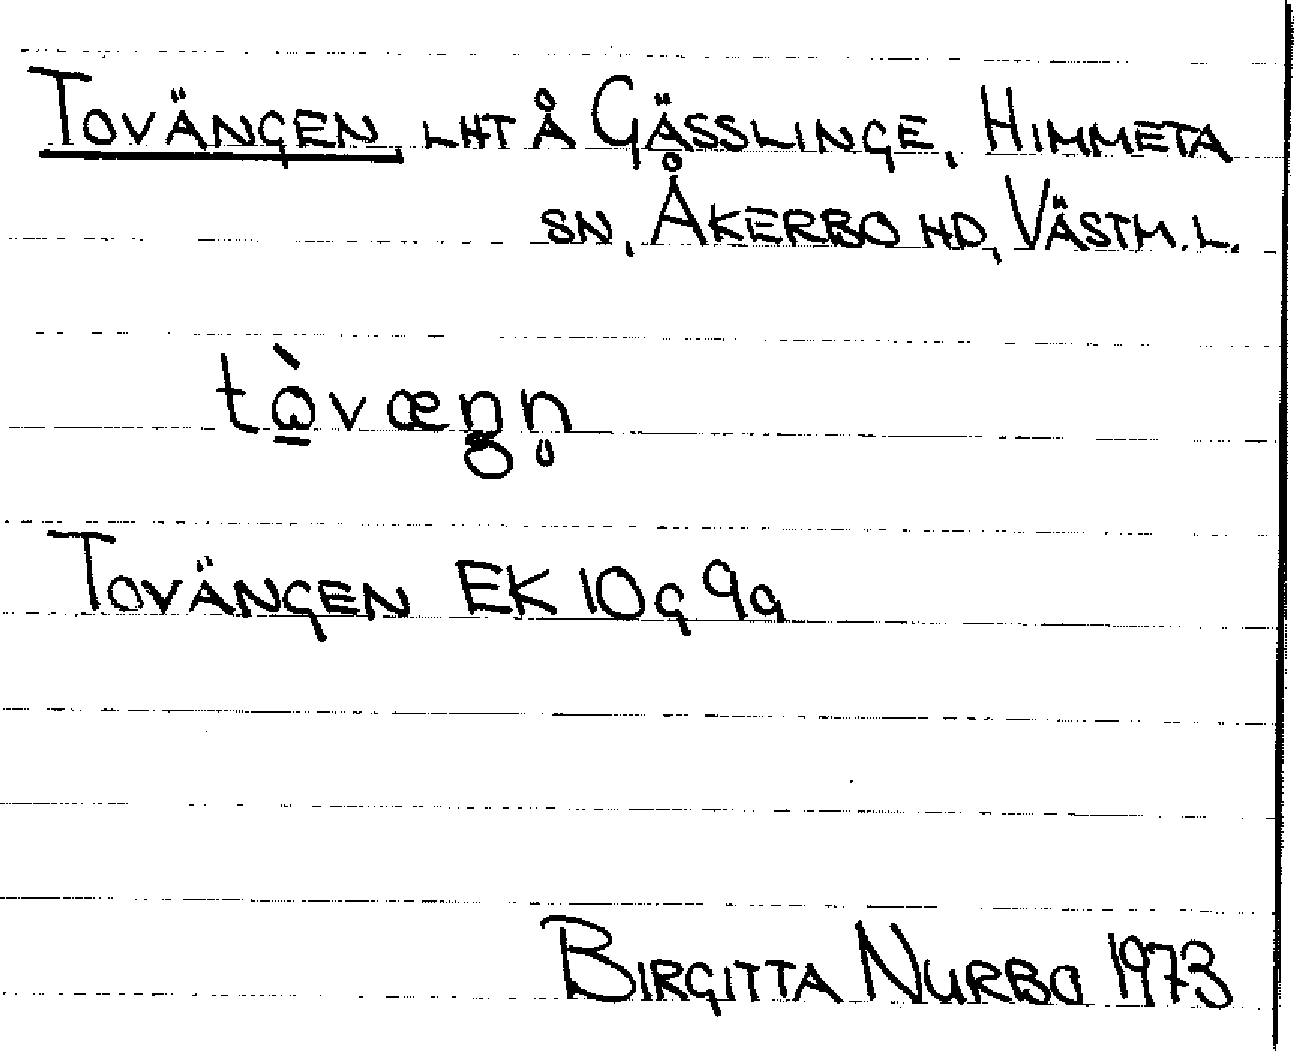 TOVÄNGEN, LHT Å GÄSSLINGE, HIMMETA
SN, ÅKERBO HD, VÄSTM. L.
TOVÄNGEN EK 10g 9a
BIRGITTA NURBO 1973